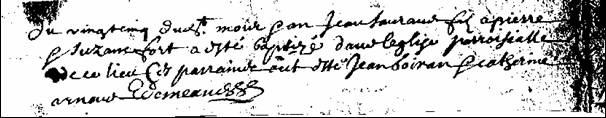 Du vingtcinq dud.t mois & an Jean Sauraud fils a pierre
& Suzane fort a esté baptizé dans leglise parroissialle
de ce lieu Ses parrains ont esté Jean boiran & catherine
arnaud